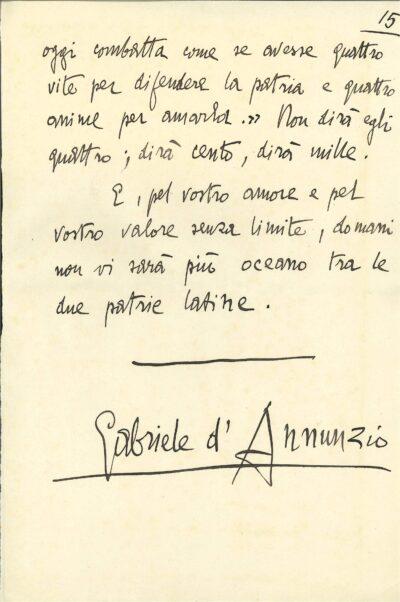 15
oggi combatta come se avesse quattro
vite per difendere la patria e quattro
anime per amarla.» Non dirà egli
quattro; dirà cento, dirà mille.
E, pel vostro amore e pel
vostro valore senza limite, domani
non vi sarà più oceano tra le
due patrie latine.
Gabriele d'Annunzio